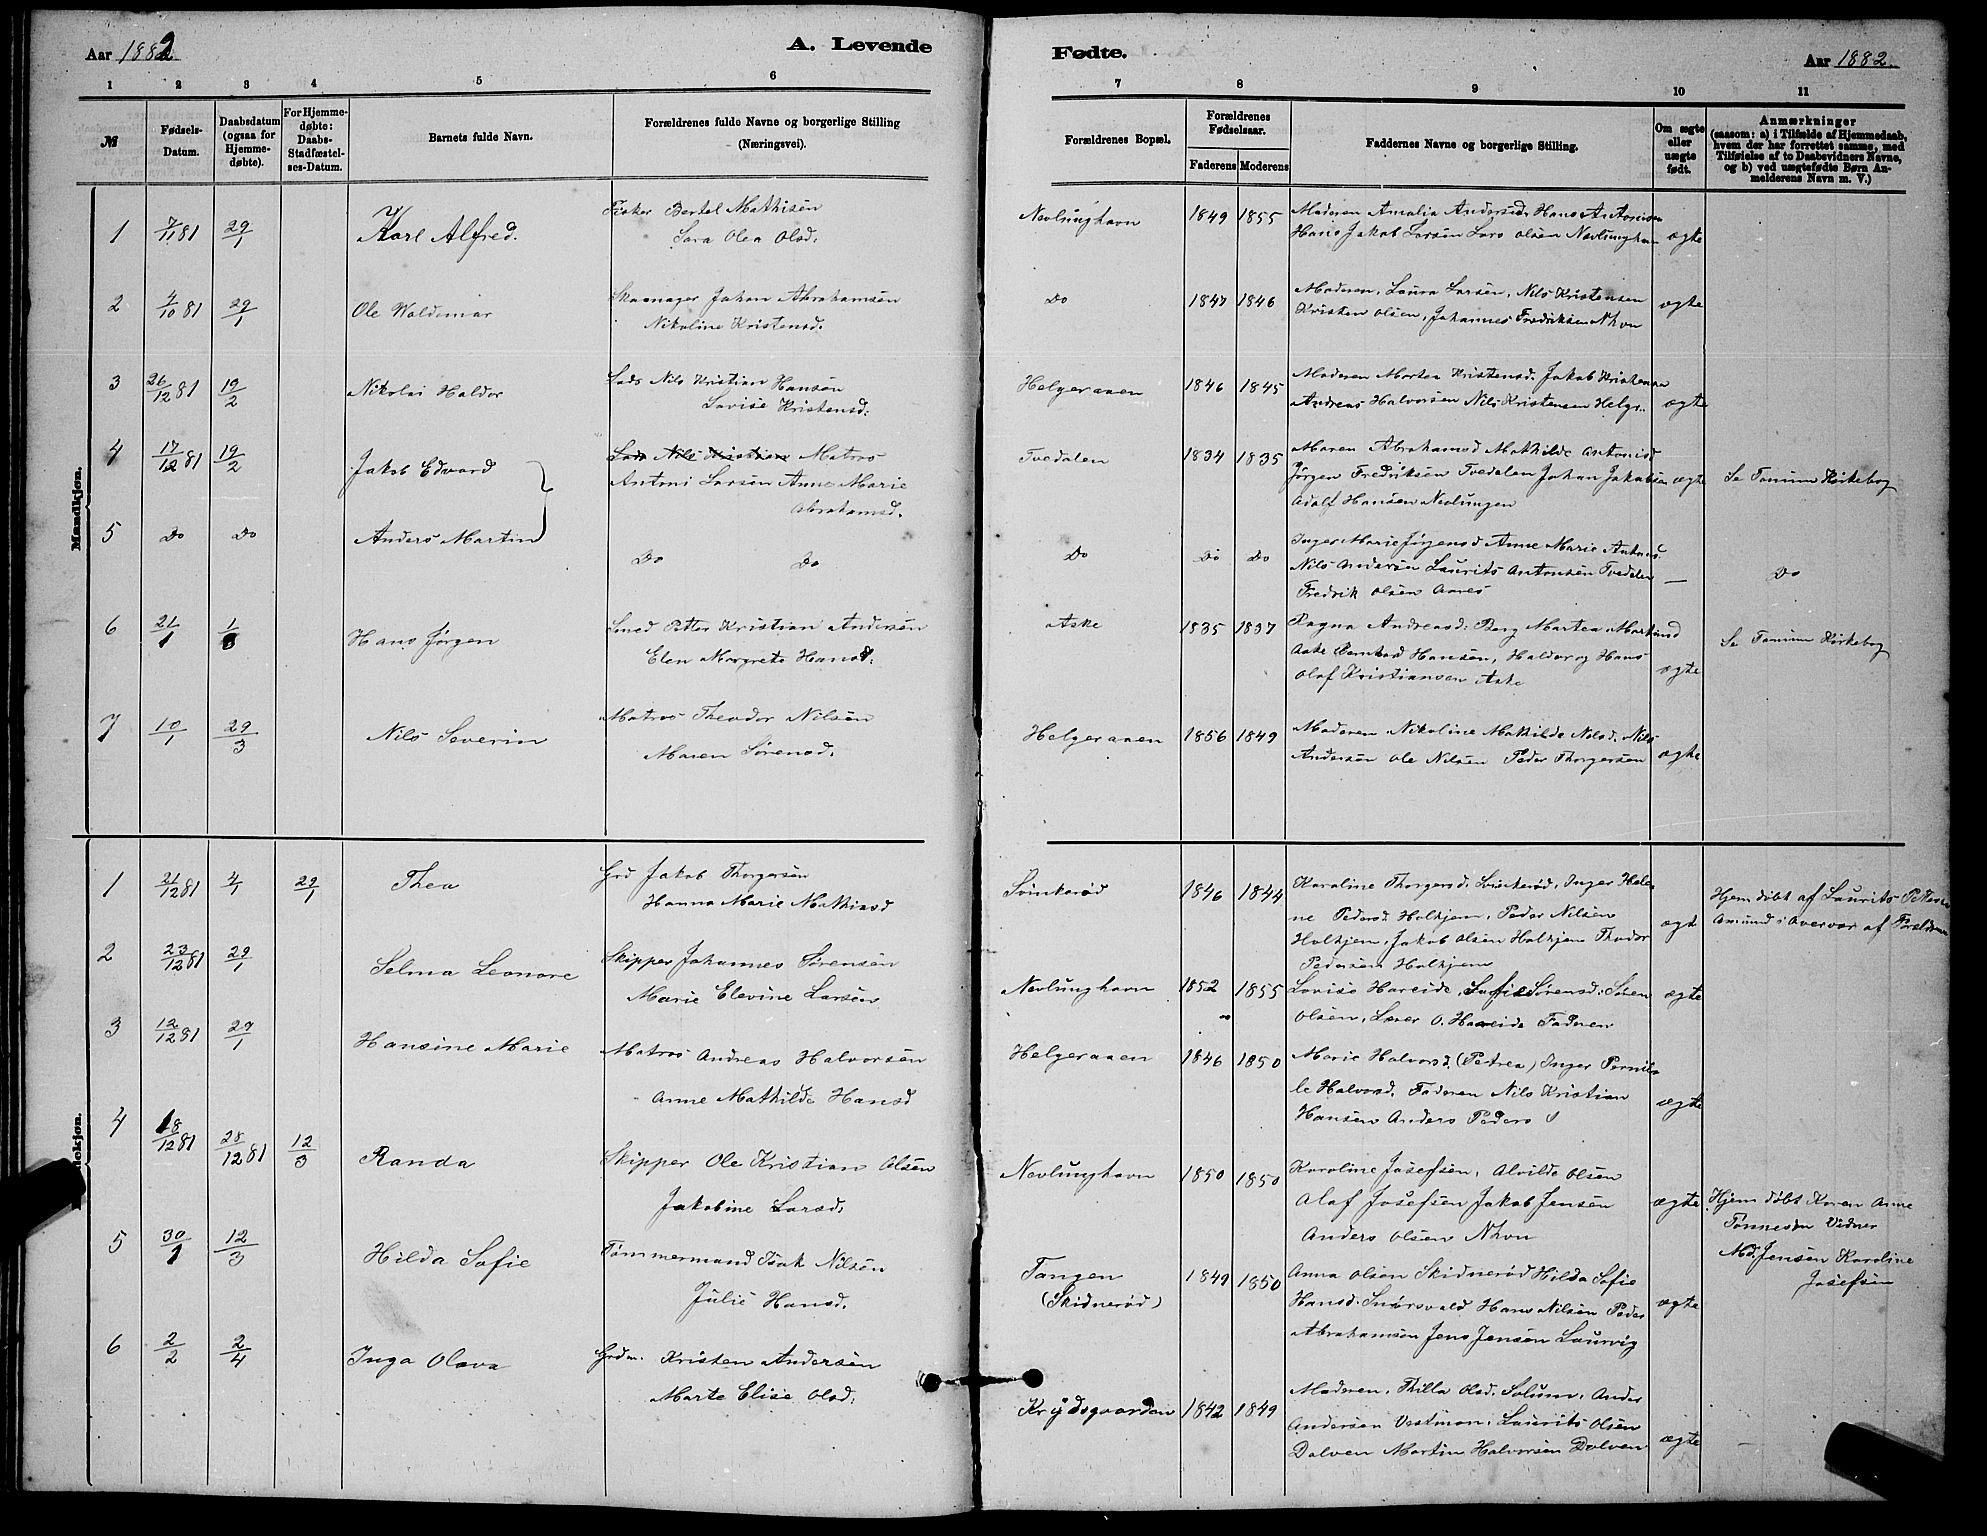 Aar 1882
A. Levende
1 2 3 4 5 6
№
Fødsels-
Datum.
Daabsdatum
(ogsaa for
Hjemme-
døbte).
For Hjemme-
døbte:
Daabs-
Stadfæstel-
ses-Datum.
Barnets fulde Navn.
Forældrenes fulde Navne og borgerlige Stilling
(Næringsvei).
Mandkjøn.
1 7/11 81 29/1 Karl Alfred. Fisker Bertel Mathisen
Sara Olea Olsd.
2 4/10 81 29/1 Ole Waldemar Skomager Johan Abrahamsen
Nikoline Kristensd.
3 26/12 81 19/2 Nikolai Haldor Lods Nils Kristian Hansen
Lovise Kristensd.
4 17/12 81 19/2 Jakob Edvard Lods Nils Kristian Matros
Antoni Larsen Anne Marie
Abrahamsd.
5 Do Do Anders Martin Do Do
6 21/1 Hans Jørgen Smed Petter Kristian Andersen
Elen Margrete Hansd.
7 10/1 29/3 Nils Severin Matros Theodor Nilsen
Maren Sørensd.
1 21/12 81 4/1 29/1 Thea Grd Jakob Thorgersen
Hanna Marie Mathisd
2 23/12 81 29/1 Selma Leonore Skipper Johannes Sørensen
Marie Elevine Larsen
3 12/12 81 29/1 Hansine Marie Matros Andreas Halvorsen
Anne Mathilde Hansd
4 18/12 81 28/12 81 12/3 Randa Skipper Ole Kristian Olsen
Jakobine Larsd.
5 30/1 12/3 Hilda Sofie Tømmermand Isak Nilsen
Julie Hansd.
6 2/2 2/4 Inga Olava Grdm. Kristen Andersen
Marte Elise Olsd.
Fødte.
Aar 1882.
7 8 9 10 11
Forældrenes Bopæl.
Forældrenes
Fødselsaar.
Faderens Moderens
Faddernes Navne og borgerlige Stilling.
Om ægte
eller
uægte
født.
Anmærkninger
(saasom: a) i Tilfælde af Hjemmedaab,
hvem der har forrettet samme, med
Tilføielse af to Daabsvidners Navne,
og b) ved uægtefødte Børn An-
melderens Navn m. V.)
Nevlunghavn 1849 1855 Moderen Amalia Andersd. Hans Antonisen
Hans Jakob Larsen Lars Olsen Nevlunghavn ægte
Do 1847 1846 Moderen, Laura Larsen, Nils Kristensen
Kristen Olsen, Johannes Fredriksen Nhvn ægte
Helgeraaen 1846 1845 Moderen Marten Kristensd. Jakob Kristensen
Andreas Halvorsen Nils Kristensen Helgr. ægte
Tvedalen 1834 1835 Maren Abrahamsd Mathilde Antonisd
Jørgen Fredriksen Tvedalen Johan Jakobsen ægte Se Tanum Kirkebog
Adolf Hansen Nevlungen
Do Do Do Inger Marie Jørgensd Anne Marie Antonsd.
Nils Andersen Laurits Antonsen Tvedalen — Do
Fredrik Olsen Aanes
Aske 1835 1837 Ragna Andreasd: Berg Martea Martinsd
Aske Bernhard Hansen, Haldor og Hans ægte Se Tanum Kirkebog
Olaf Kristiansen Aske
Helgeraaen 1856 1849 Moderen Nikoline Mathilde Nilsd. Nils
Andersen Ole Nilsen Peder Thorgersen ægte
1846 1844 Karoline Thorgersd. Inger Hele-
ne Pedersd Holkjem, Peder Nilsen ægt Hjemdøbt af Laurits Petersen
Holkjem, Jakob Olsen Holkjem Thodor Amund i Overvær af Forældrene
Pedersen Holkjem
Nevlunghavn 1852 1855 Lovise Hareide, Sofie Sørensd: Søren ægte
Olsen, O. Hareide Faderen
Helgeraaen 1846 1850 Marie Halvorsd. (Petrea) Inger Pernil-
le Halvorsd. Faderen Nils Kristian ægte
Hansen Anders Peders
Nevlunghavn 1850 1850 Karoline Josefsen, Alvilde Olsen
Olaf Josefsen Jakob Jensen ægte Hjemdøbt Karen Anne
Anders Olsen Nhvn Tønnesen Vidner
Md. Jensen Karoline
Josefsen
Tangen 1849 1850 Anna Olsen Skidnerød Hilda Sofie
(Skidnerød) Hansd. Hans Nilsen Peder ægte
Abrahamsen Jens Jensen Laurvig
Krydsgaarden 1842 1849 Moderen, Thilla Olsd. Solum, Anders
Andersen Vestman, Laurits Olsen
Dolven Martin Halvorsen Dolven ægte